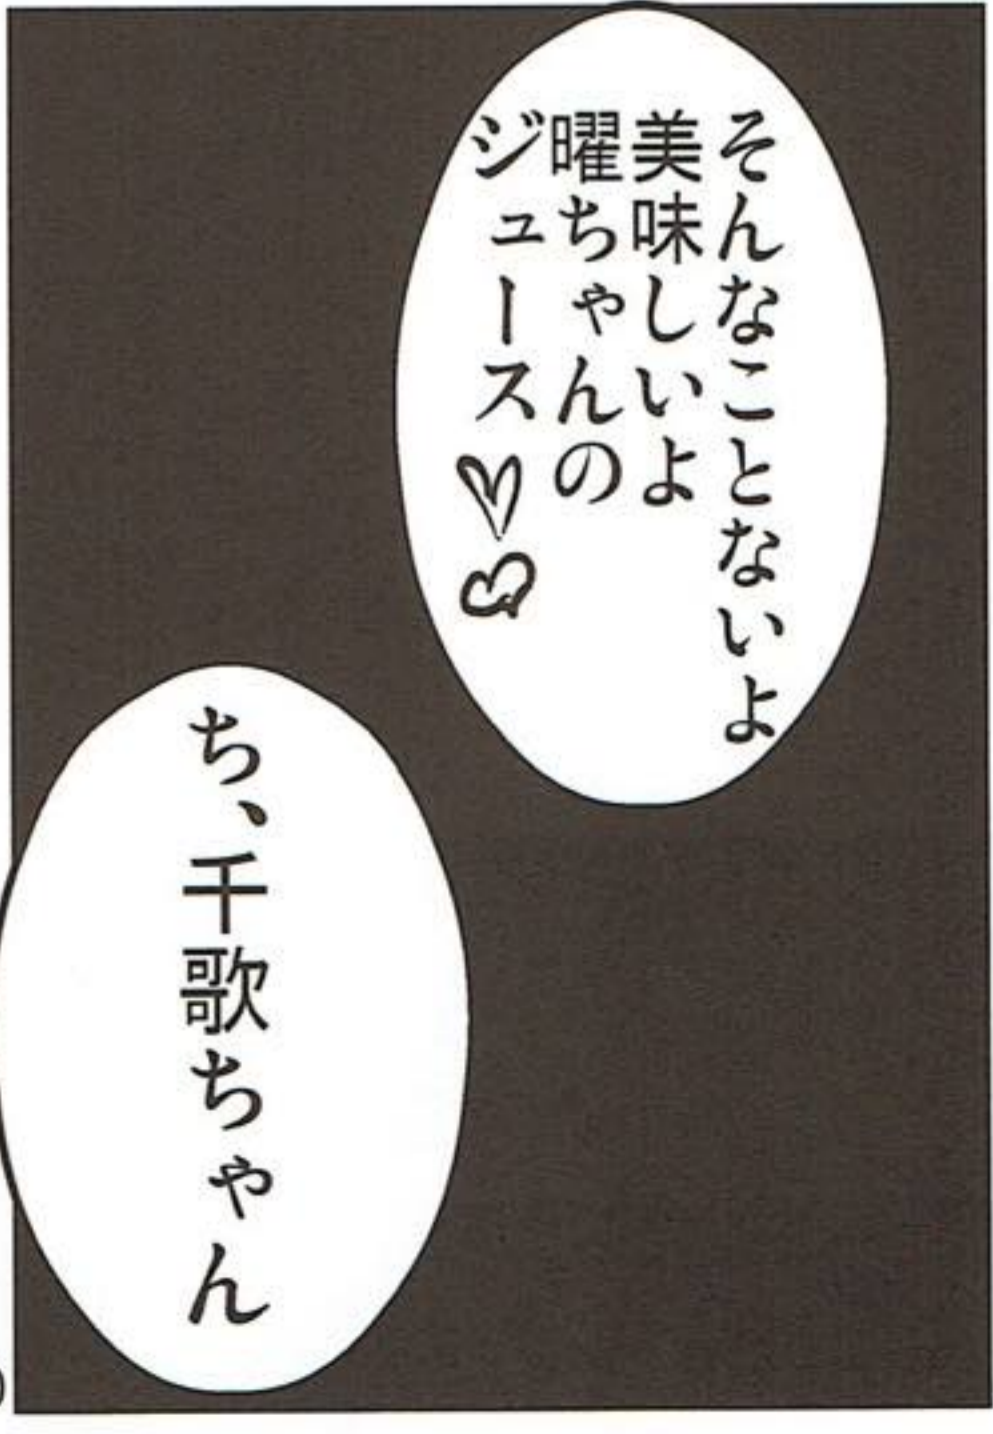 そんなことないよ
美味しいよ
曜ちゃんの
ジュース♡♡
ち、千歌ちゃん